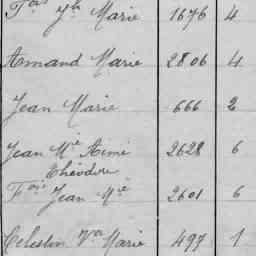 Fois Yh Marie 1676 4
Armand Marie 2806 4
Jean Marie 666 2
Jean Mie Aimé 2628 6
Théodore
Fois Jean Mie 2601 6
Célestin Vor Marie 497 1